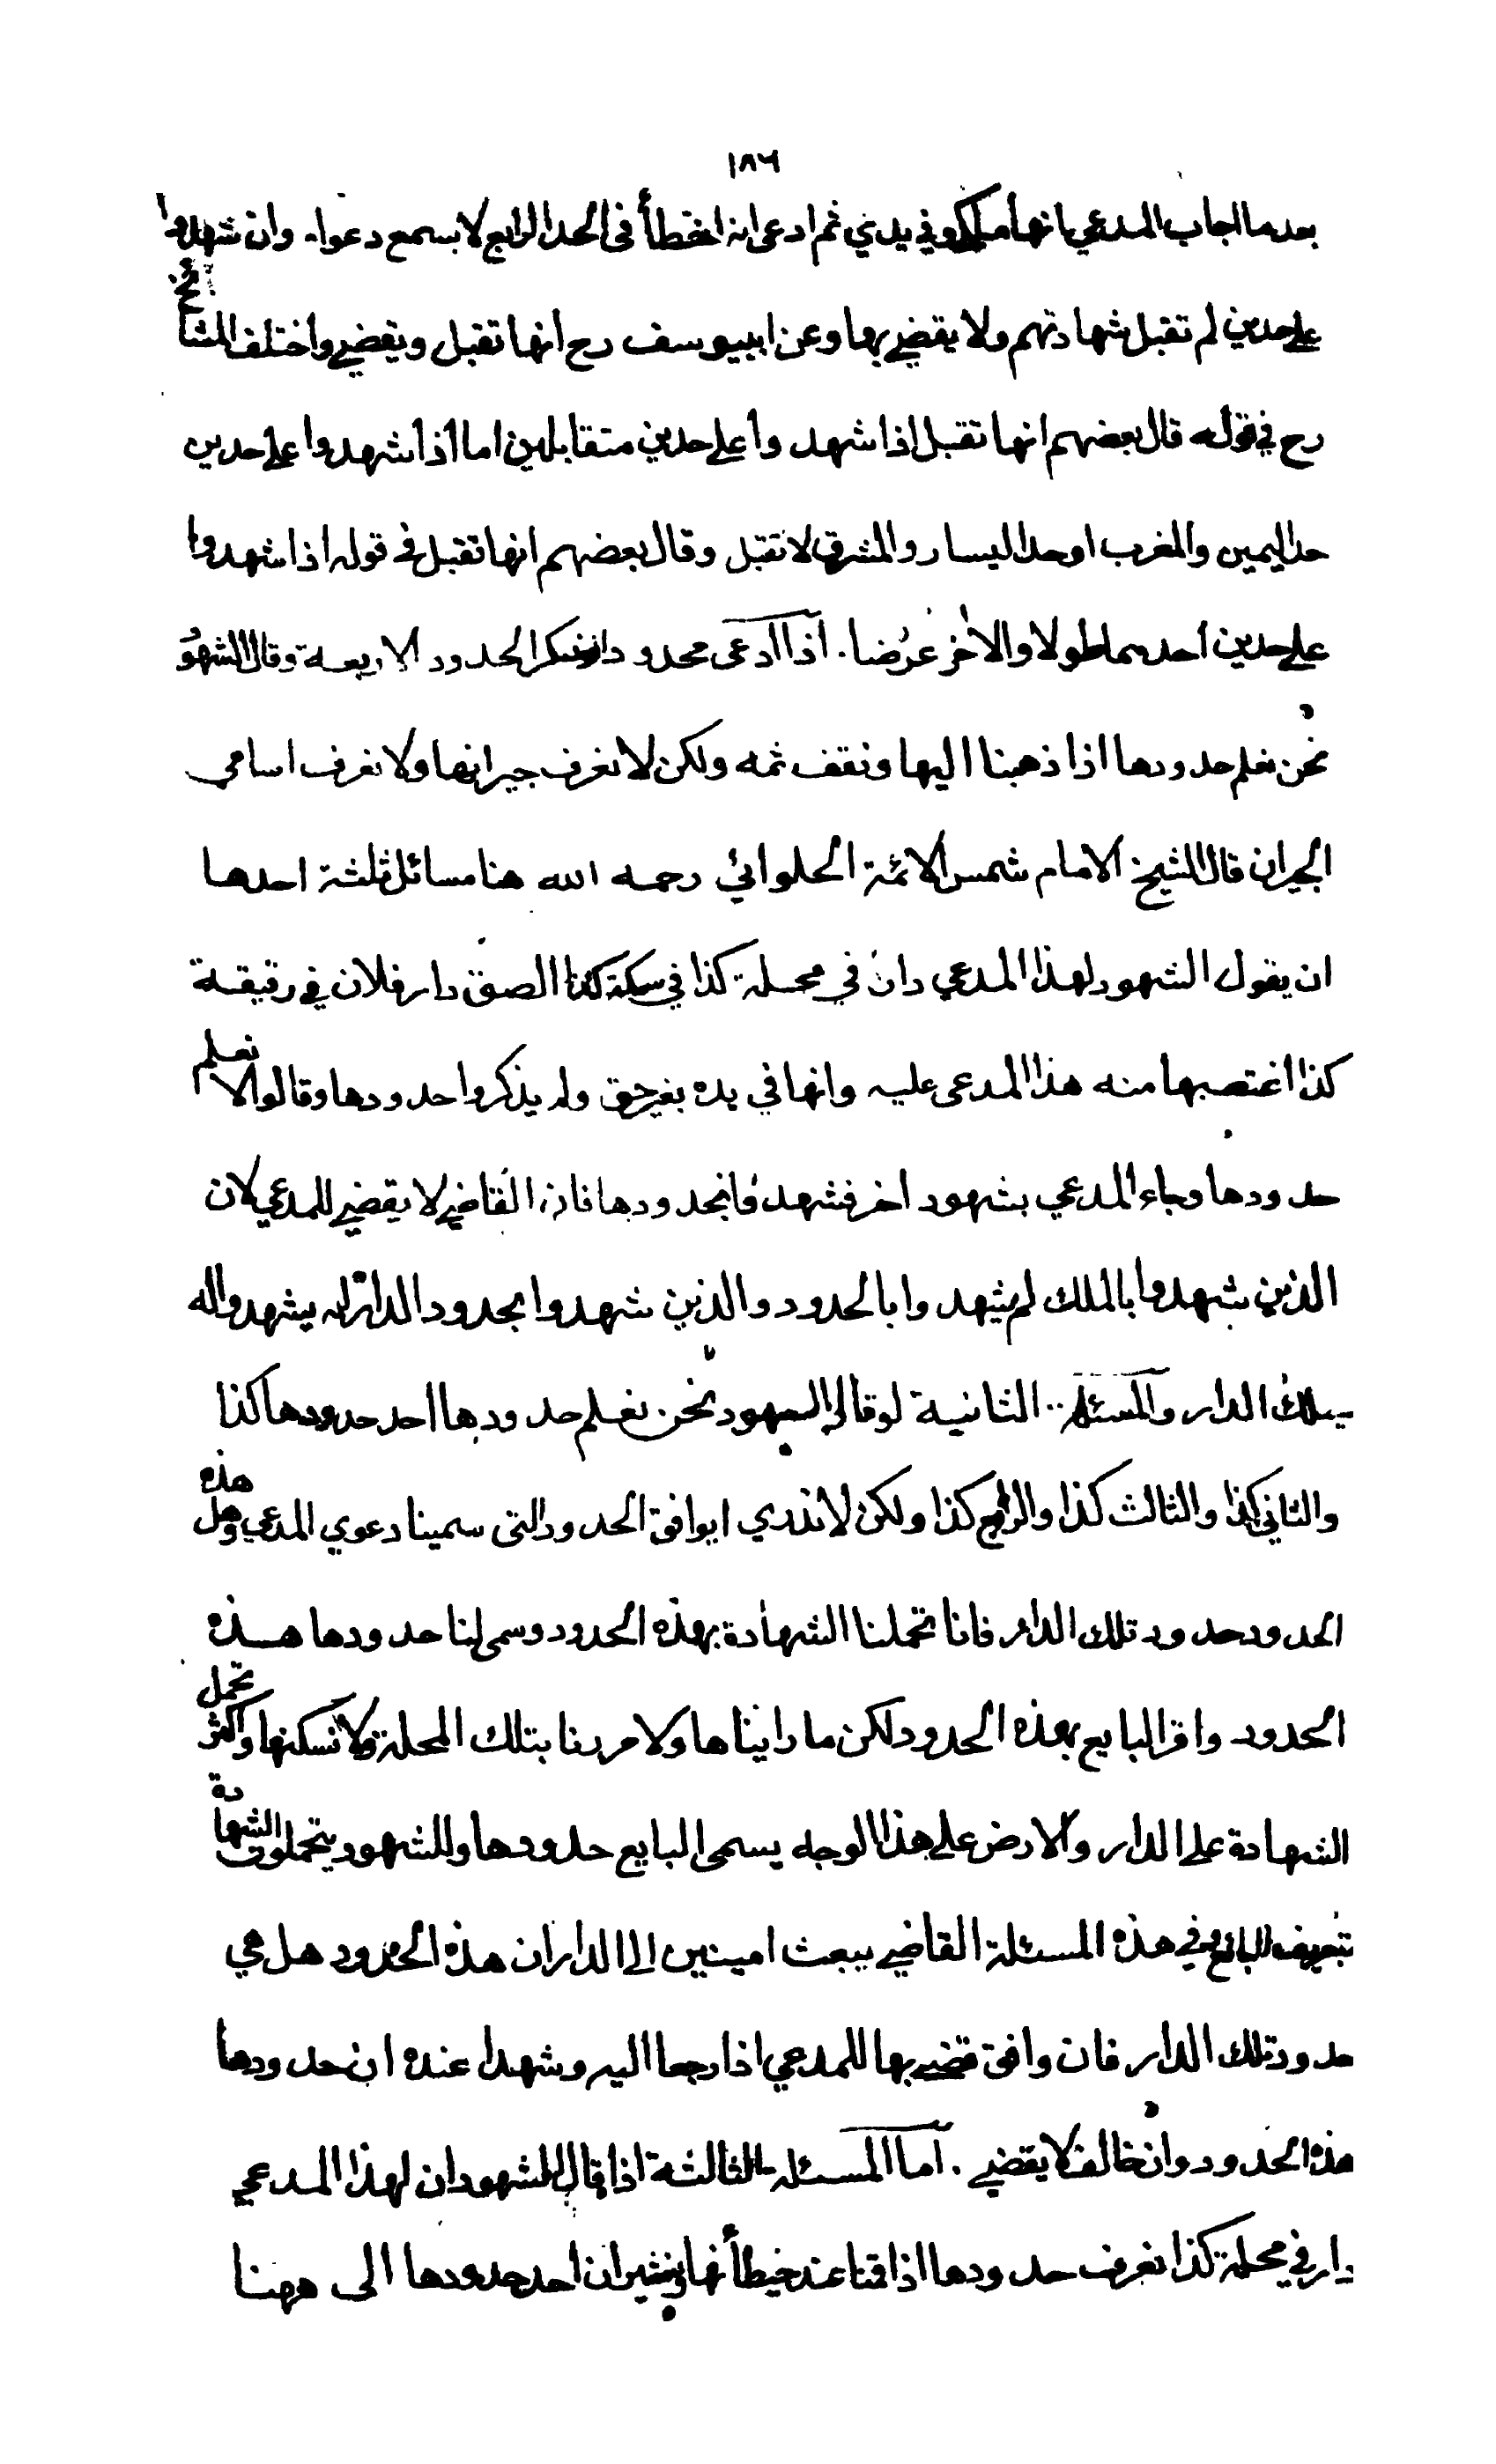 ١٨٦
بعد ما اجاب المدعي بانها ملكي وفي يدي ثم ادعى انه اخطأ فى الحد الرابع لا يسمع دعواه وان شهدوا
على حدين لم تقبل شهادتهم ولا يقضي بها وعن ابييوسف رح انها تقبل ويقضي واختلف المشائخ
رح في قوله قال بعضهم انها تقبل اذا شهدوا على حدين متقابلين اما اذا شهدوا على حدين
حد اليمين والمغرب او حد اليسار والمشرق لا تقبل وقال بعضهم انها تقبل في قوله اذا شهدوا
على حدين احدهما طولا والاخر عرضا . اذا ادعى محدودا وذكر الحدود الاربعة وقال الشهود
نحن نعلم حدودها اذا ذهبنا اليها ونقف ثمه ولكن لا نعرف جيرانها ولا نعرف اسامي
الجيران قال الشيخ الامام شمس الائمة الحلوائي رحمه الله هنا مسائل ثلثة احدها
ان يقول الشهود لهذا المدعي دار في محلة كذا في سكة كذا الصق دار فلان في رقيقة
كذا اغتصبها منه هذا المدعى عليه وانها في يده بغير حق ولم يذكروا حدودها وقالوا لا نعلم
حدودها وجاء المدعي بشهود اخر فشهدوا بحدودها فان القاضي لا يقضي للمدعي لان
الذين شهدوا بالملك لم يشهدوا بالحدود والذين شهدوا بحدود الدار لم يشهدوا له
بملك الدار والمسئلة الثانية لو قال الشهود نحن نعلم حدودها احد حدودها كذا
والثاني كذا والثالث كذا والرابع كذا ولكن لا ندري ايوافق الحدود التى سمينا دعوي المدعي وهل هذه
الحدود حدود تلك الدار فانا تحملنا الشهادة بهذه الحدود وسمى لنا حدودها هذه
الحدود واقر البايع بهذه الحدود لكن ما رايناها ولا مررنا بتلك المحلة ولا نسكنها واكثر تحمل
الشهادة على الدار والارض على هذا الوجه يسمى البايع حدودها وللشهود يتحملون الشهادة
بتعريف البائع وفي هذه المسئلة القاضي يبعث امينين الى الدار ان هذه الحدود هل هي
حدود تلك الدار فان وافق قضي بها للمدعي اذا رجعا اليه وشهدا عنده ان حدودها
هذه الحدود وان خالف لا يقضي . اما المسئلة الثالثة اذا قال الشهود ان لهذا المدعي
دار في محلة كذا نعرف حدودها اذا قمنا عند حيطانها ونشير ان احد حدودها الى ههنا